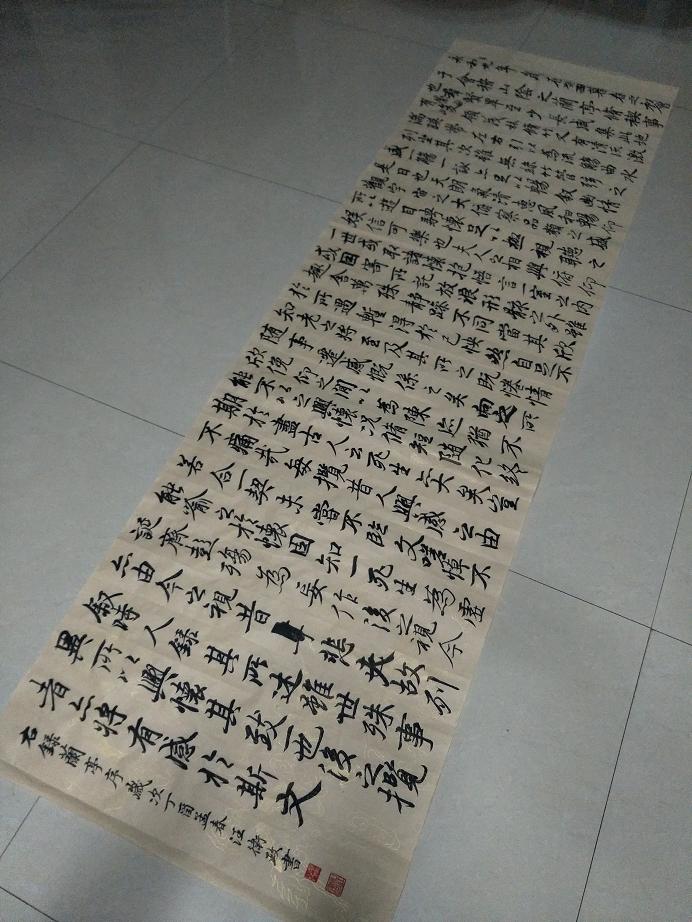 永和九年歲在癸丑暮春之初會
于會稽山陰之蘭亭脩稧事
也羣賢畢至少長咸集此地
有崇山峻領茂林脩竹又有清流激
湍暎帶左右引以為流觴曲水
列坐其次雖無絲竹管弦之
盛一觴一詠亦足以暢敘幽情
是日也天朗氣清惠風和暢仰
觀宇宙之大俯察品類之盛
所以遊目騁懷足以極視聽之
娛信可樂也夫人之相與俯仰
一世或取諸懷抱悟言一室之內
或因寄所託放浪形骸之外雖
趣舍萬殊靜躁不同當其欣
於所遇暫得於己快然自足不
知老之將至及其所之既惓情
隨事遷感慨係之矣向之所
欣俛仰之間以為陳迹猶不
能不以之興懷況脩短隨化終
期於盡古人云死生亦大矣豈
不痛哉每攬昔人興感之由
若合一契未嘗不臨文嗟悼不
能喻之於懷固知一死生為虛
誕齊彭殤為妄作後之視今
亦由今之視昔悲夫故列
敘時人錄其所述雖世殊事
異所以興懷其致一也後之攬
者亦將有感於斯文
右錄蘭亭序歲次丁酉孟春汪衛政書